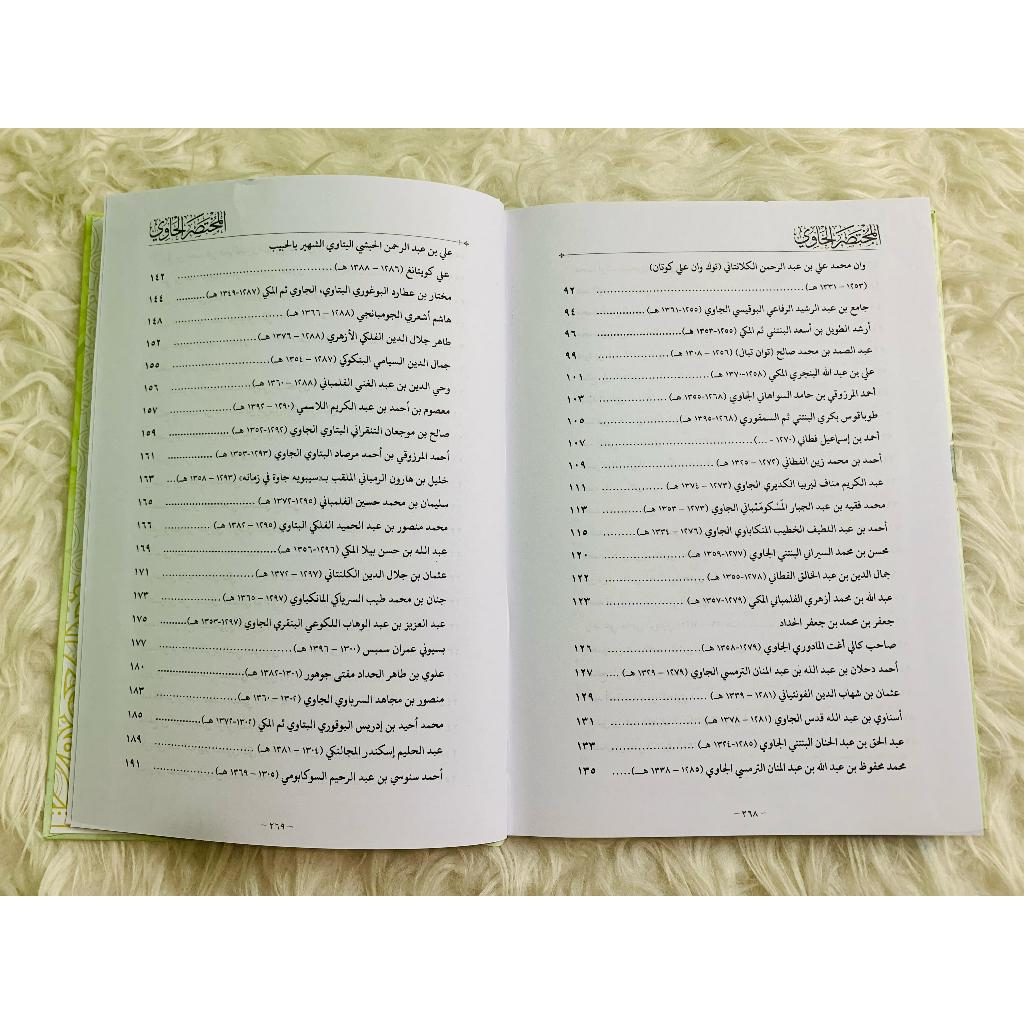 المختصر الحاوي
وان محمد علي بن عبد الرحمن الكلانتاني (توك وان علي كوتان)
(١٢٥٣ – ١٣٣١ هـ) ........ ٩٢
جامع بن عبد الرشيد الرفاعي البوقيسي الجاوي (١٢٥٥-١٣٦١ هـ) ........ ٩٤
أرشد الطويل بن أسعد البنتني ثم المكي (١٢٥٥-١٣٥٣ هـ) ........ ٩٦
عبد الصمد بن محمد صالح (توان تبال) (١٢٥٦ – ١٣٠٨ هـ) ........ ٩٩
علي بن عبد الله البنجري المكي (١٢٥٨-١٣٧٠ هـ) ........ ١٠١
أحمد المرزوقي بن حامد السواهاني الجاوي (١٢٦٨-١٣٥٥ هـ) ........ ١٠٣
طوباقوس بكري البنتني ثم السمفوري (١٢٦٨-١٣٩٥ هـ) ........ ١٠٥
أحمد بن إسماعيل فطاني (١٢٧٠ - ...) ........ ١٠٧
أحمد بن محمد زين الفطاني (١٢٧٢ – ١٣٢٥ هـ) ........ ١٠٩
عبد الكريم مناف ليربيا الكديري الجاوي (١٢٧٣ – ١٣٧٤ هـ) ........ ١١١
محمد فقيه بن عبد الجبار المسكومبباني الجاوي (١٢٧٣ – ١٣٥٣ هـ) ........ ١١٣
أحمد بن عبد اللطيف الخطيب المنكاباوي الجاوي (١٢٧٦ – ١٣٣٤ هـ) ........ ١١٥
محسن بن محمد السيراني البنتني الجاوي (١٢٧٧-١٣٥٩ هـ) ........ ١٢٠
جمال الدين بن عبد الخالق الفطاني (١٢٧٨-١٣٥٥ هـ) ........ ١٢٢
عبد الله بن محمد أزهري الفلمباني المكي (١٢٧٩-١٣٥٧ هـ) ........ ١٢٣
جعفر بن محمد بن جعفر الحداد
صاحب كالي أغت المادوري الجاوي (١٢٧٩-١٣٥٨ هـ) ........ ١٢٦
أحمد دحلان بن عبد الله بن عبد المنان الترمسي الجاوي (١٢٧٩ – ١٣٢٩ هـ) ........ ١٢٧
عثمان بن شهاب الدين الفونتياني (١٢٨١ – ١٣٣٩ هـ) ........ ١٢٩
أسناوي بن عبد الله قدس الجاوي (١٢٨١ – ١٣٧٨ هـ) ........ ١٣١
عبد الحق بن عبد الحنان البنتني الجاوي (١٢٨٥-١٣٢٤ هـ) ........ ١٣٣
محمد محفوظ بن عبد الله بن عبد المنان الترمسي الجاوي (١٢٨٥ – ١٣٣٨ هـ) ..... ١٣٥
– ٢٦٨ –
المختصر الحاوي
علي بن عبد الرحمن الحبشي البتاوي الشهير بالحبيب
علي كويتانغ (١٢٨٦ – ١٣٨٨ هـ) ........ ١٤٢
مختار بن عطارد البوغوري البتاوي، الجاوي ثم المكي (١٢٨٧-١٣٤٩ هـ) ........ ١٤٤
هاشم أشعري الجومبانجي (١٢٨٨ – ١٣٦٦ هـ) ........ ١٤٨
طاهر جلال الدين الفلكي الأزهري (١٢٨٨ – ١٣٧٦ هـ) ........ ١٥٢
جمال الدين السيامي البنكوكي (١٢٨٧ – ١٣٥٤ هـ) ........ ١٥٥
وحي الدين بن عبد الغني الفلمباني (١٢٨٨ – ١٣٦٠ هـ) ........ ١٥٦
معصوم بن أحمد بن عبد الكريم اللاسمي (١٢٩٠ – ١٣٩٢ هـ) ........ ١٥٧
صالح بن موجعان التنقراني البتاوي الجاوي (١٢٩٢-١٣٥٢ هـ) ........ ١٥٩
أحمد المرزوقي بن أحمد مرصاد البتاوي الجاوي (١٢٩٣-١٣٥٣ هـ) ........ ١٦١
خليل بن هارون الرمباني الملقب بـ«سيبويه جاوة في زمانه» (١٢٩٣ – ١٣٥٨ هـ) ... ١٦٣
سليمان بن محمد حسين الفلمباني (١٢٩٥-١٣٧٢ هـ) ........ ١٦٥
محمد منصور بن عبد الحميد الفلكي البتاوي (١٢٩٥ – ١٣٨٢ هـ) ........ ١٦٦
عبد الله بن حسن بيلا المكي (١٢٩٦-١٣٥٦ هـ) ........ ١٦٩
عثمان بن جلال الدين الكلنتاني (١٢٩٧ – ١٣٧٢ هـ) ........ ١٧١
جنان بن محمد طيب السرياكي المانكباوي (١٢٩٧ – ١٣٦٥ هـ) ........ ١٧٣
عبد العزيز بن عبد الوهاب اللكوعي البنقري الجاوي (١٢٩٧-١٣٥٣ هـ) ........ ١٧٥
بسيوني عمران سمبس (١٣٠٠ – ١٣٩٦ هـ) ........ ١٧٧
علوي بن طاهر الحداد مفتي جوهور (١٣٠١-١٣٨٢ هـ) ........ ١٨٠
منصور بن مجاهد السرباوي الجاوي (١٣٠٢ – ١٣٦٠ هـ) ........ ١٨٣
محمد أحيد بن إدريس البوقوري البتاوي ثم المكي (١٣٠٢-١٣٧٢ هـ) ........ ١٨٥
عبد الحليم إسكندر المجالنكي (١٣٠٤ – ١٣٨١ هـ) ........ ١٨٩
أحمد سنوسي بن عبد الرحيم السوكابومي (١٣٠٥ – ١٣٦٩ هـ) ........ ١٩١
– ٢٦٩ –